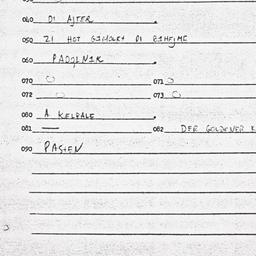 040 DI AJTER
050 ZI HOT GIHOLFN DI BEHEJME
060 PADOLNIK
070 071
072 073
080 A KELBALE
081 — 082 DER GOLDENER
090 PASIEN